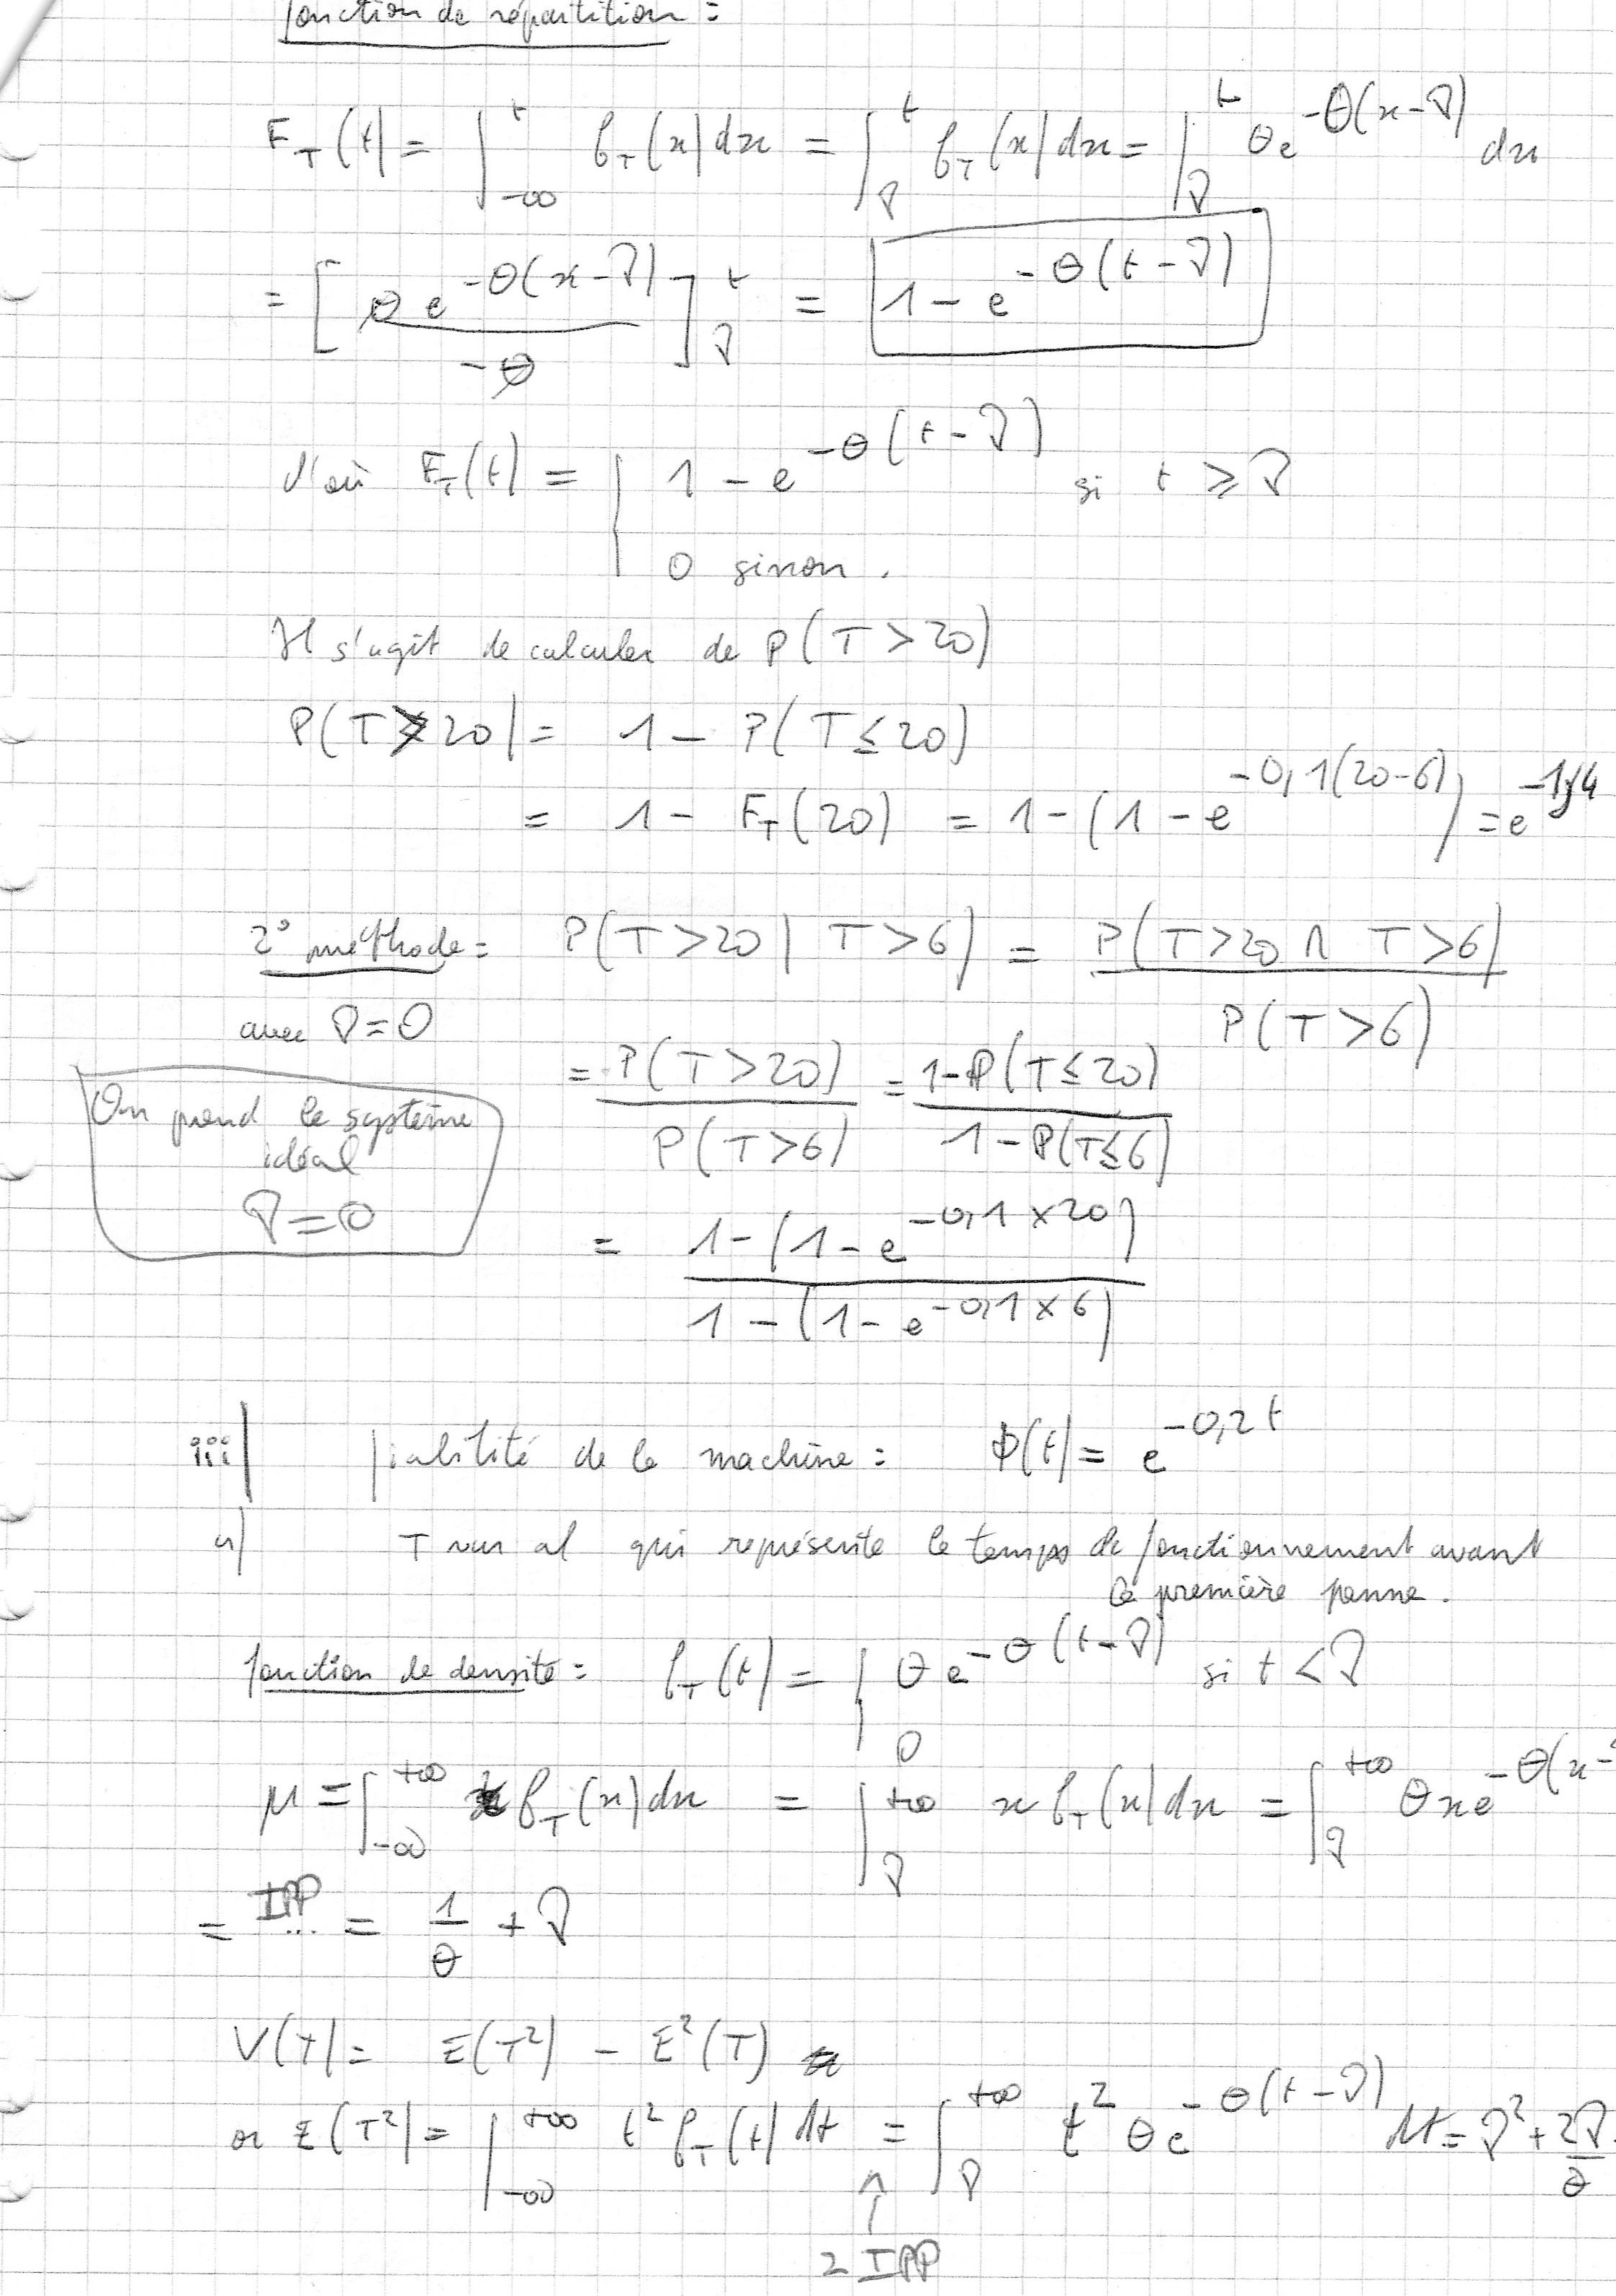 fonction de répartition :
F_T(t) = ∫_{-∞}^{t} f_T(x) dx = ∫_γ^t f_T(x) dx = ∫_γ^t θe^{-θ(x-γ)} dx
= [θ e^{-θ(x-γ)} / -θ]_γ^t = 1 - e^{-θ(t-γ)}
d'où F_T(t) = { 1 - e^{-θ(t-γ)} si t ≥ γ
0 sinon.
Il s'agit de calculer de P(T > 20)
P(T > 20) = 1 - P(T ≤ 20)
= 1 - F_T(20) = 1 - (1 - e^{-0,1(20-6)}) = e^{-1,4}
2° méthode : P(T>20 | T>6) = P(T>20 ∩ T>6) / P(T>6)
avec γ=0
= P(T>20) / P(T>6) = 1-P(T≤20) / 1-P(T≤6)
On prend le système
idéal
γ=0
= 1-(1-e^{-0,1×20}) / 1-(1-e^{-0,1×6})
iii) fiabilité de la machine : Φ(t) = e^{-0,2t}
a) T var al qui représente le temps de fonctionnement avant
la première panne.
fonction de densité : f_T(t) = { θ e^{-θ(t-γ)} si t < γ
0
μ = ∫_{-∞}^{+∞} x f_T(x) dx = ∫_γ^{+∞} x f_T(x) dx = ∫_γ^{+∞} θxe^{-θ(x-
= IPP ... = 1/θ + γ
V(T) = E(T²) - E²(T)
or E(T²) = ∫_{-∞}^{+∞} t² f_T(t) dt = ∫_γ^{+∞} t² θe^{-θ(t-γ)} dt = γ² + 2γ/θ
↑
2 IPP